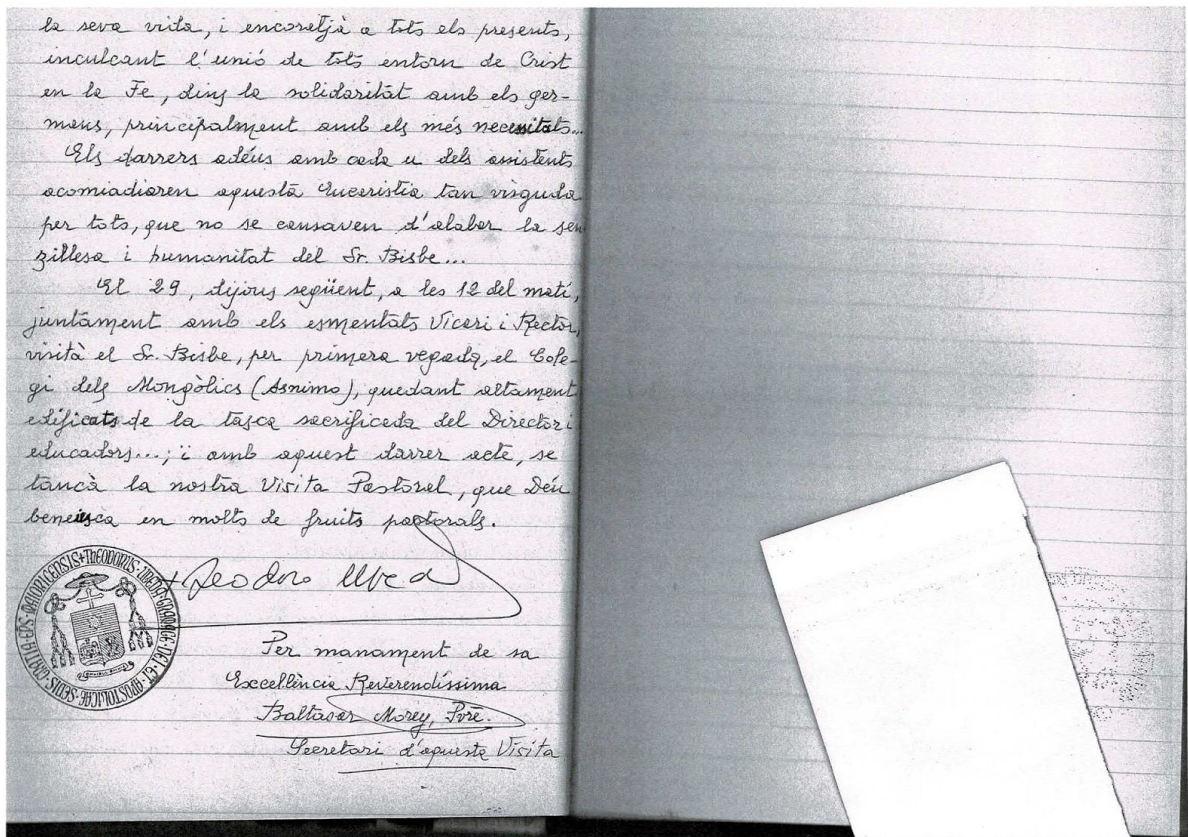 la seva vida, i encoretjà a tots els presents,
inculcant l'unió de tots entorn de Crist
en la Fe, dins la solidaritat amb els ger-
mans, principalment amb els més necessitats...
Els darrers adéus amb cada u dels assistents
acomiadaren aquesta Eucaristia tan viscuda
per tots, que no se cansaven d'alabar la sen
zillesa i humanitat del Sr. Bisbe...
El 29, dijous següent, a les 12 del matí,
juntament amb els esmentats Vicari i Rector,
visità el Sr. Bisbe, per primera vegada, el Cole-
gi dels Mongòlics (Asnimo), quedant altament
edificats de la tasca sacrificada del Director i
educadors...; i amb aquest darrer acte, se
tancà la nostra Visita Pastoral, que Déu
beneïesca en molts de fruits pastorals.
+ Teodoro Ubeda
THEODORUS UBEDA GRAMAGE DEI ET APOSTOLICAE SEDIS GRATIA EPS
Per manament de sa
Excellència Reverendíssima
Baltasar Morey, Pvre.
Secretari d'aquesta Visita